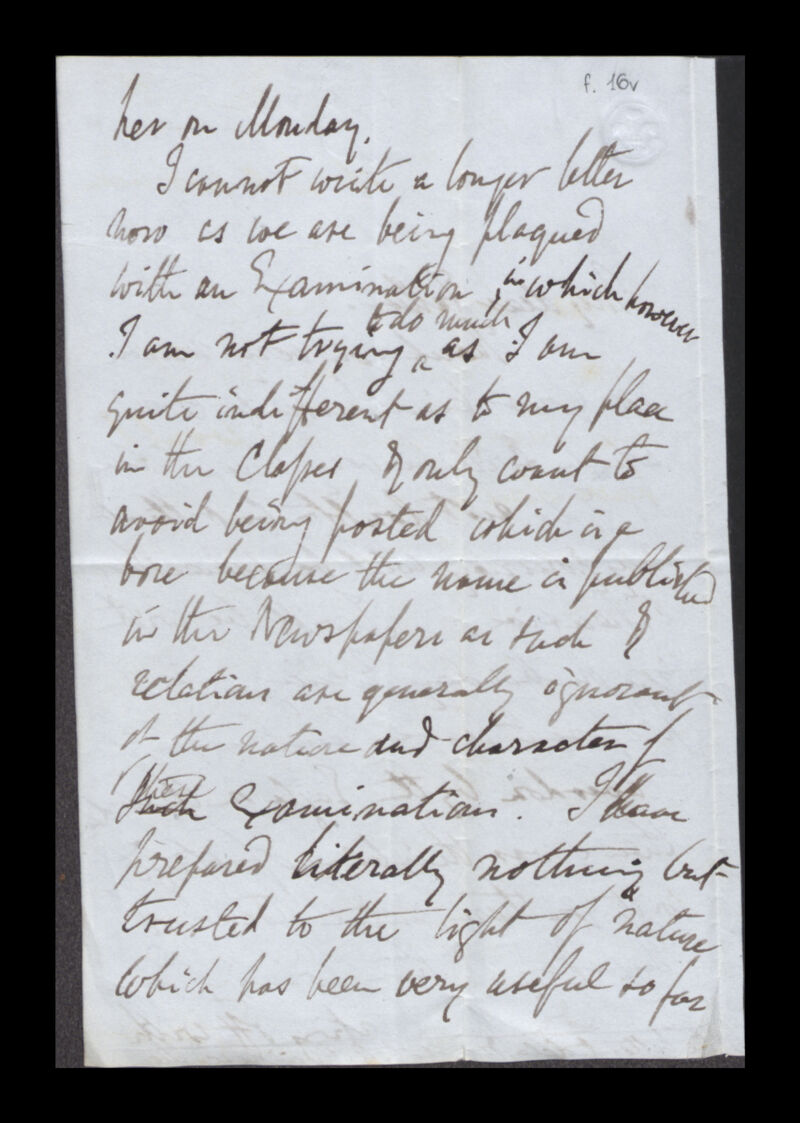 f. 16v
her on Monday.
I cannot write a longer letter
now as we are being plagued
with an Examination, in which however
I am not trying to do much as I am
quite indifferent as to my place
in the Classes & only want to
avoid being posted which is a
bore because the name is published
in the Newspapers as such &
relations are generally ignorant
of the nature and character of
these such Examinations. I have
prepared literally nothing but
trusted to the light of nature
which has been very useful so far